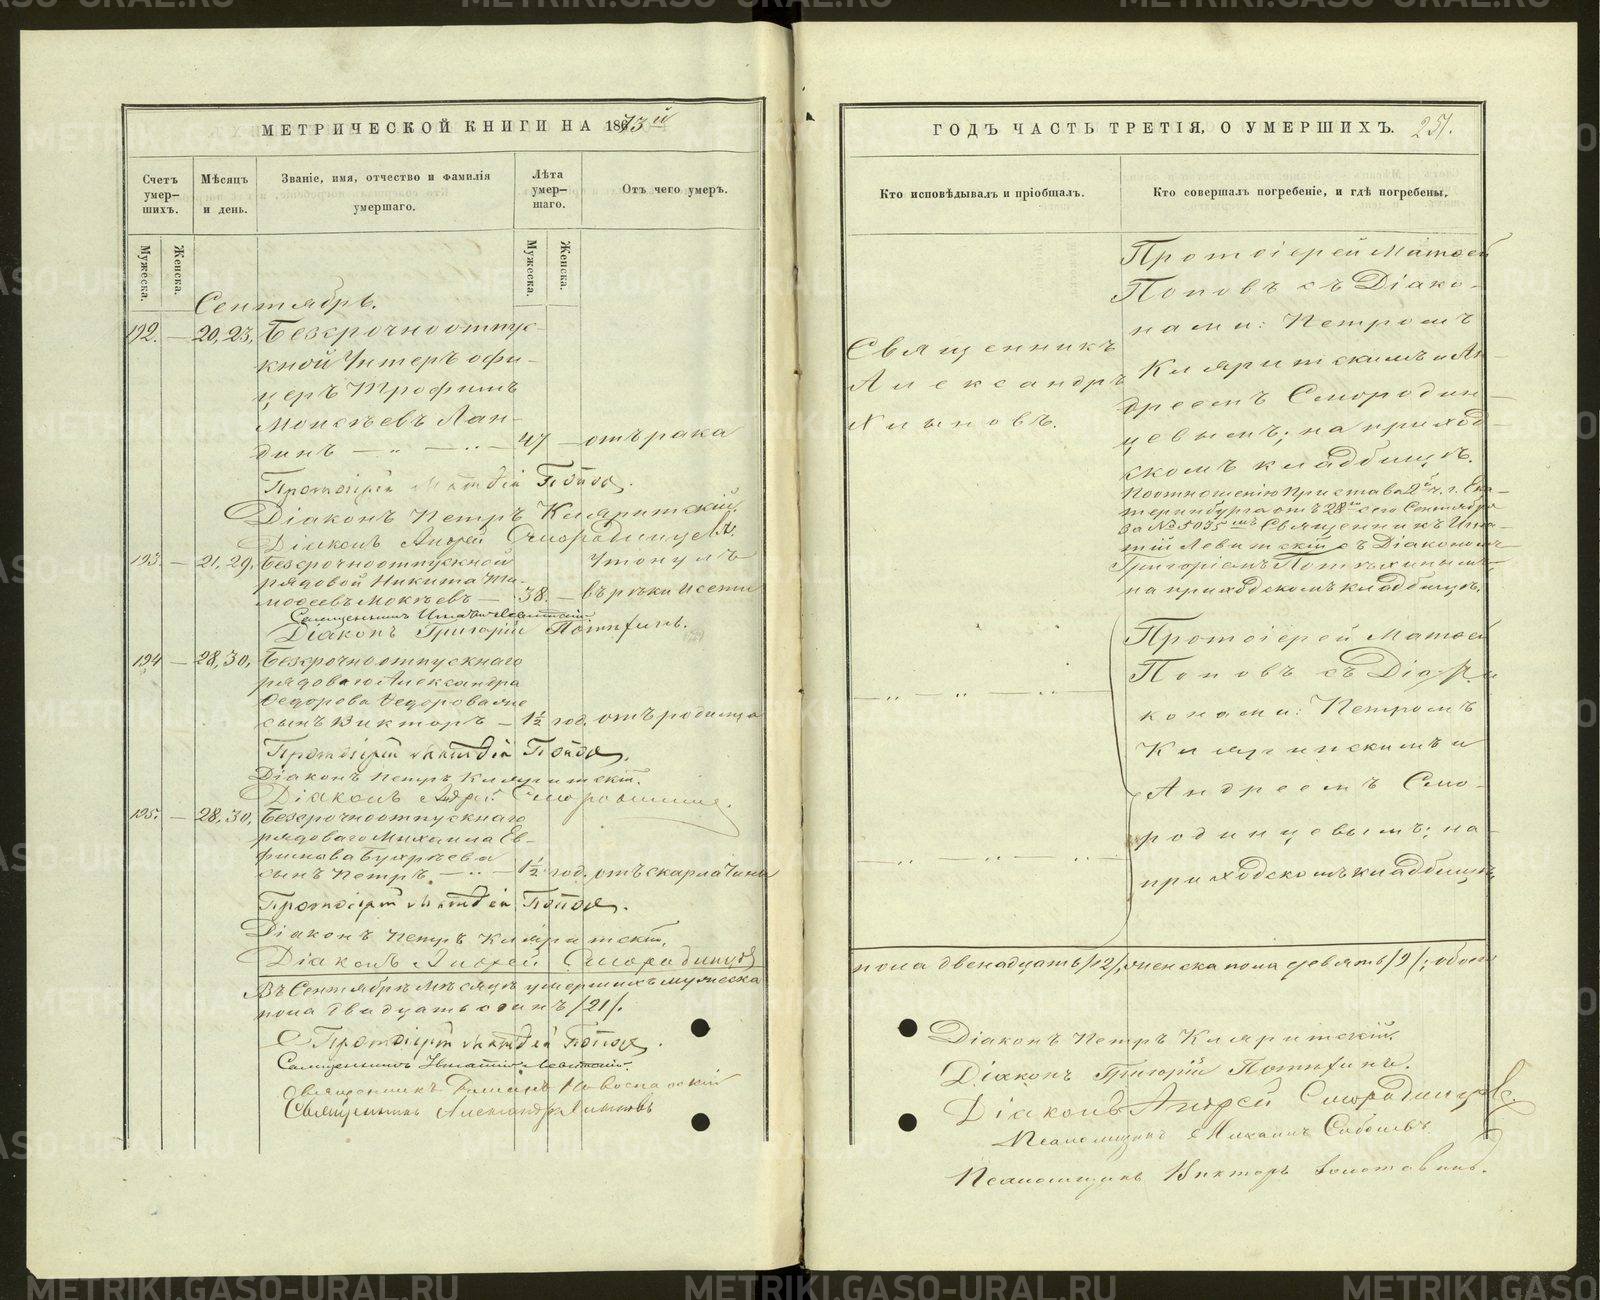 МЕТРИЧЕСКОЙ КНИГИ НА 1873й
Счетъ умер-шихъ.
Мѣсяцъ и день.
Званіе, имя, отчество и фамилія умершаго.
Лѣта умер-шаго.
Отъ чего умеръ.
Мужеска.
Женска.
Мужеска.
Женска.
Сентябрь.
192. — 20, 23, Безсрочноотпус-
кной Унтеръ офи-
церъ Трофимъ
Моисѣевъ Лан-
динъ — „ — „ — 47 — отъ рака
Протоіерей Матѳей Поповъ.
Діаконъ Петръ Кляритскій.
Діаконъ Андрей Смородинцевъ.
193. — 21, 29, Безсрочноотпускной Утонулъ
рядовой Никита Ти-
моѳеевъ Мокѣевъ — 38. — въ рѣки Исети
Священникъ Игнатій Левитскій
Діаконъ Григорій Потѣхинъ.
194 — 28, 30, Безсрочноотпускнаго
рядоваго Александра
Ѳедорова
сынъ Викторъ — 1½ год. отъ родимца
Протоіерей Матѳей Поповъ.
Діаконъ Петръ Кляритскій.
Діаконъ Андрей Смородинцевъ.
195. — 28, 30, Безсрочноотпускнаго
рядоваго Михаила Ев-
фимова Бухрѣева
сынъ Петръ — „ — 1½ год. отъ скарлатины
Протоіерей Матѳей Поповъ.
Діаконъ Петръ Кляритскій.
Діаконъ Андрей Смородинцевъ
Въ Сентябрѣ мѣсяцѣ умершихъ мужеска
пола двадцать одинъ /21/.
Протоіерей Матѳей Поповъ.
Священникъ Игнатій Левитскій.
Священникъ Новоспасскій
Священникъ Александръ Хлыновъ
ГОДЪ ЧАСТЬ ТРЕТІЯ, О УМЕРШИХЪ. 251.
Кто исповѣдывалъ и пріобщалъ.
Кто совершалъ погребеніе, и гдѣ погребены.
Священникъ
Александръ
Хлыновъ.
Протоіерей Матѳей
Поповъ съ Діако-
нами: Петромъ
Кляритскимъ и Ан-
дреемъ Смородин-
цевымъ; на приход-
скомъ кладбищѣ.
По отношенію Пристава 2й ч. г. Ека-
теринбурга отъ 28го сего Сентября
за № 5035мъ Священникъ Игна-
тій Левитскій съ Діакономъ
Григоріемъ Потѣхинымъ
на приходскомъ кладбищѣ.
Протоіерей Матѳей
Поповъ съ Діа-
конами: Петромъ
Кляритскимъ и
Андреемъ Смо-
родинцевымъ; на
приходскомъ кладбищѣ,
пола двенадцать /12/, женска пола девять /9/; обоего
Діаконъ Петръ Кляритскій.
Діаконъ Григорій Потѣхинъ.
Діаконъ Андрей Смородинцевъ.
Псаломщикъ Михаилъ Соболевъ.
Псаломщикъ Викторъ Золотавинъ.
METRIKI.GASO-URAL.RU